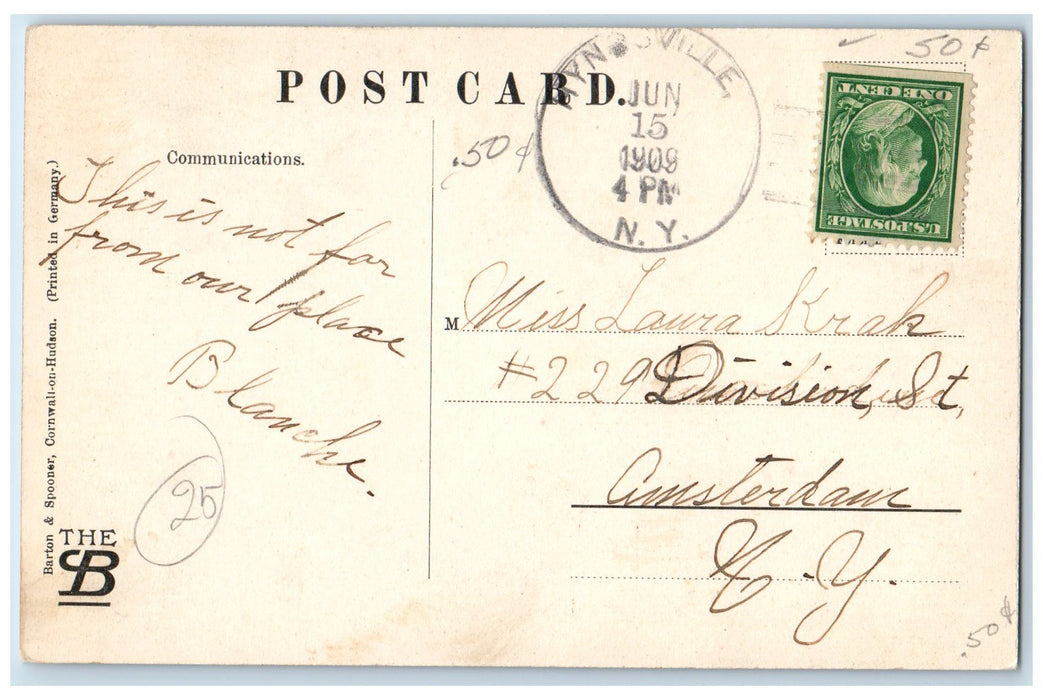 50¢
POST CARD.
JUN
15
1909
4 PM
N. Y.
ONE CENT
U.S. POSTAGE
.50¢
Communications.
This is not far
from our place
Blanche.
25
M Miss Laura Krak
#229 Division, St,
Amsterdam
N.Y.
Barton & Spooner, Cornwall-on-Hudson. (Printed in Germany.)
THE
SB
.50¢